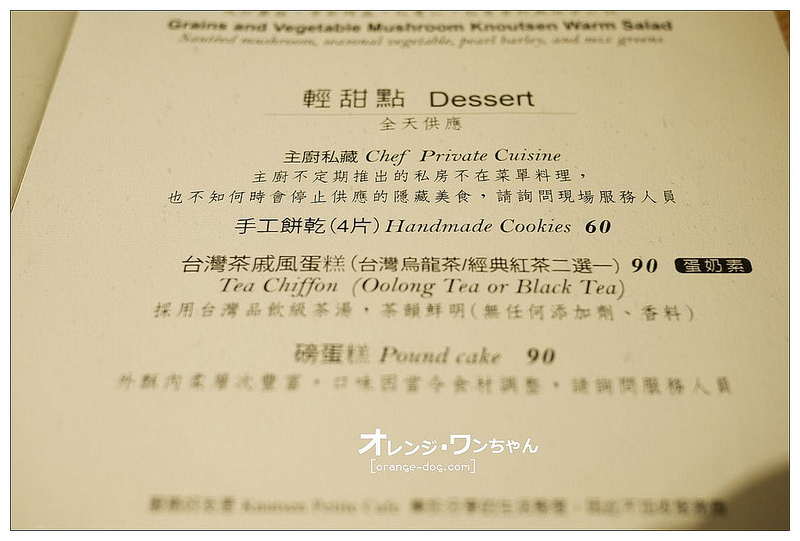 Grains and Vegetable Mushroom Knoutsen Warm Salad
Sautéed mushroom, seasonal vegetable, pearl barley, and mix greens
輕甜點 Dessert
全天供應
主廚私藏 Chef Private Cuisine
主廚不定期推出的私房不在菜單料理，
也不知何時會停止供應的隱藏美食，請詢問現場服務人員
手工餅乾(4片) Handmade Cookies 60
台灣茶戚風蛋糕(台灣烏龍茶/經典紅茶二選一) 90 蛋奶素
Tea Chiffon (Oolong Tea or Black Tea)
採用台灣品飲級茶湯，茶韻鮮明(無任何添加劑、香料)
磅蛋糕 Pound cake 90
外酥內柔層次豐富。口味因當令食材調整。請詢問服務人員
オレンジ・ワンちゃん
[orange-dog.com]
Knutsen Petite Cafe